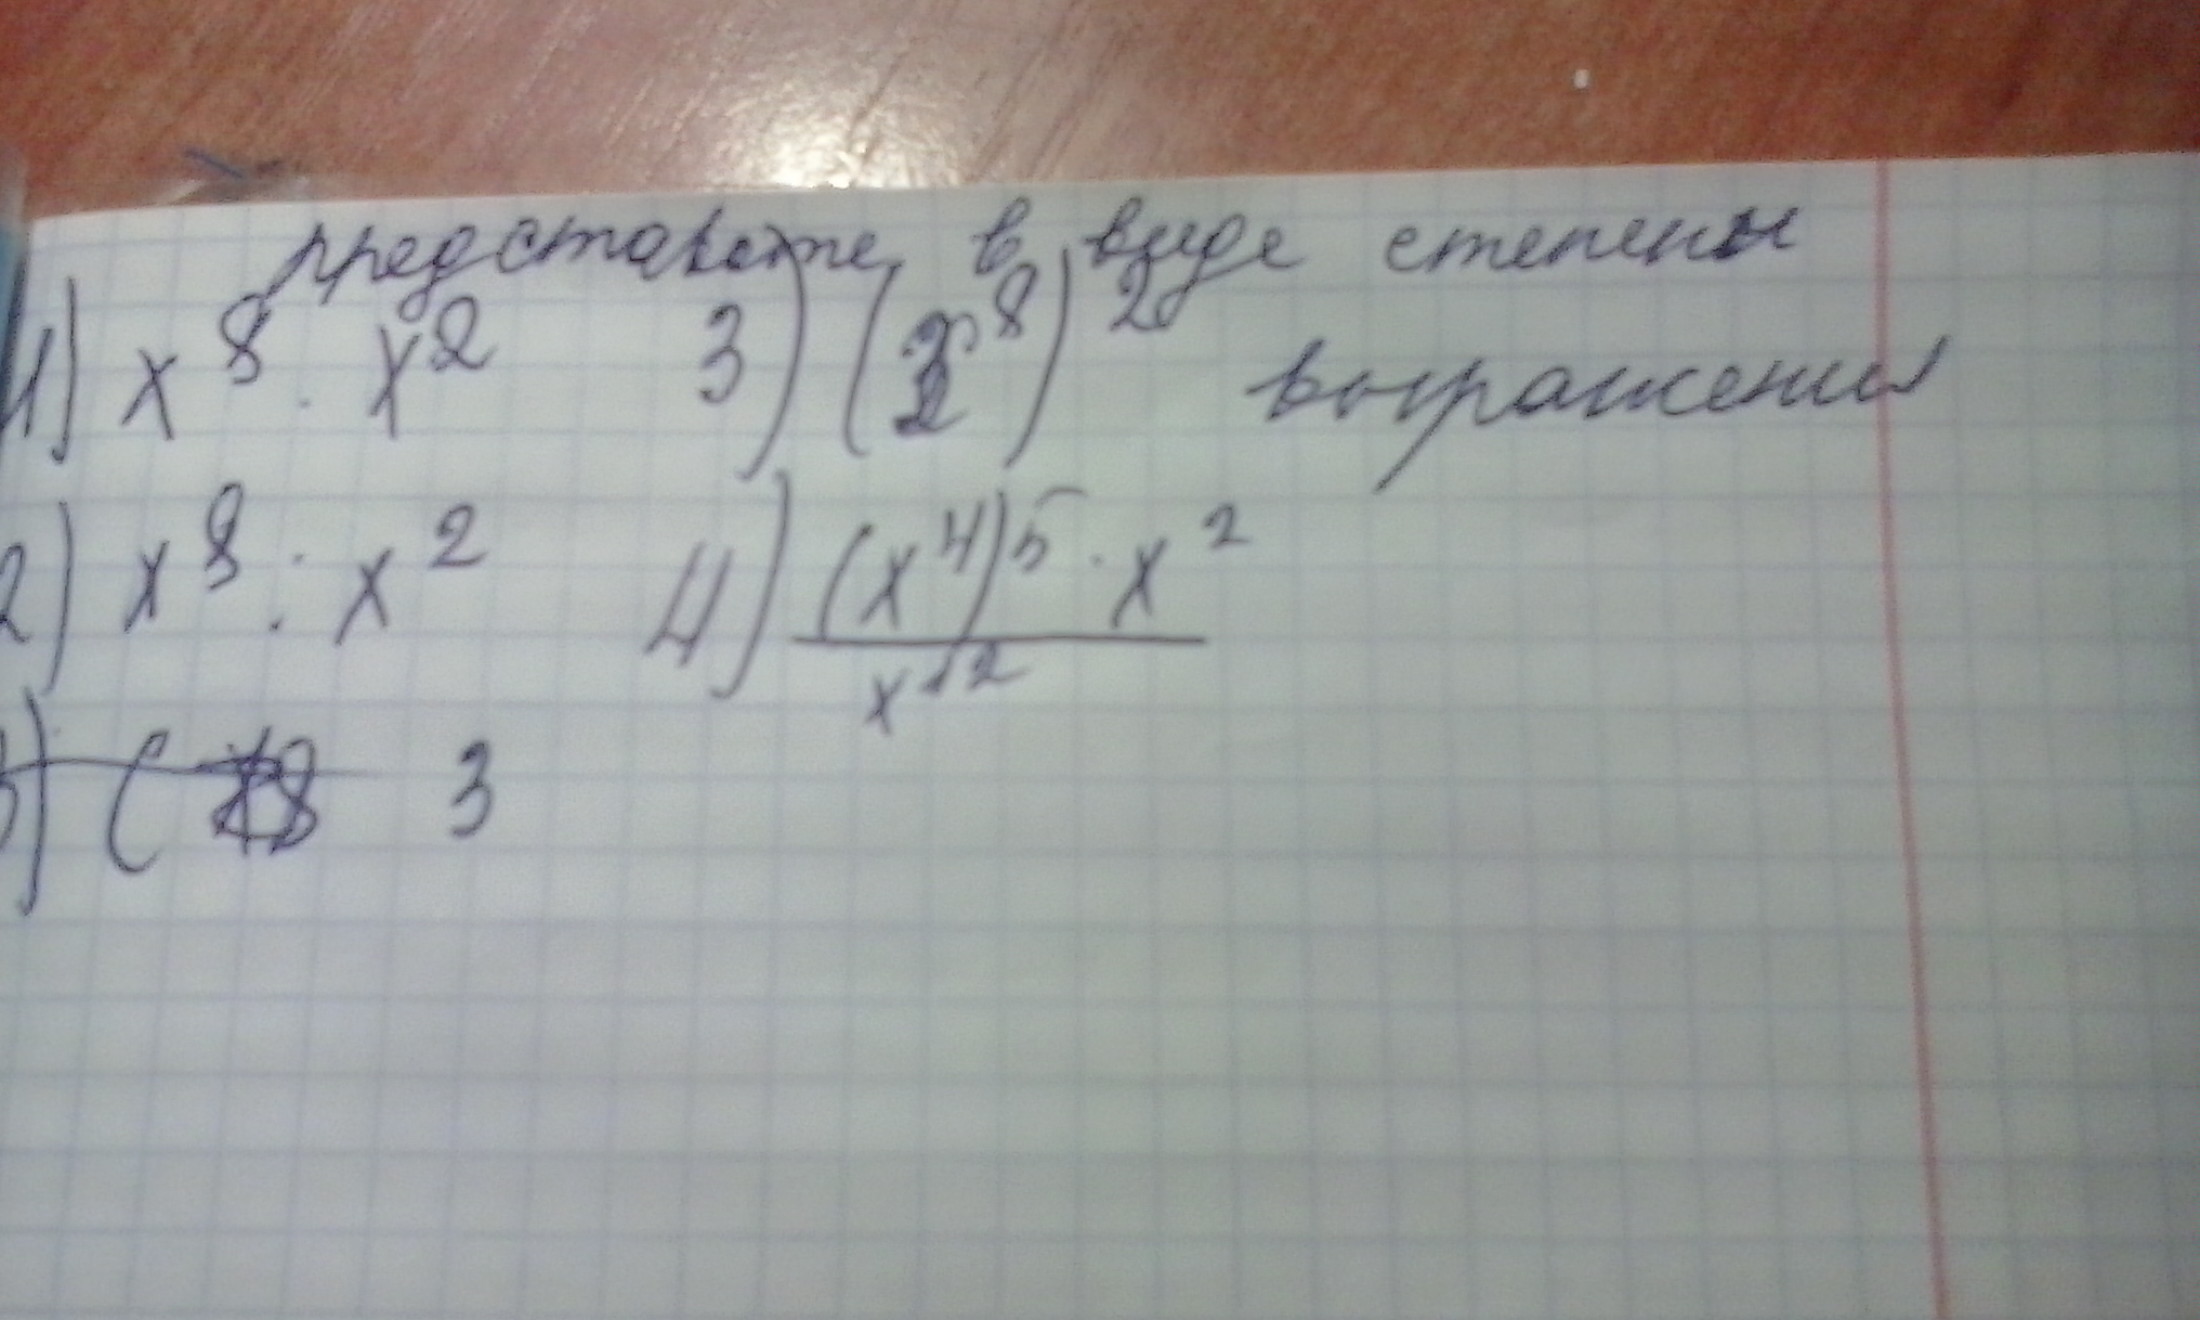 представьте в виде степены
выражения
1) x⁸ · x² 3) (x⁸)²
2) x⁸ : x² 4) (x⁴)⁵ · x² / x¹²
3) ( 3